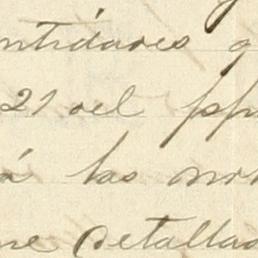 ntidades q
21 del pp
á las no
me detallad